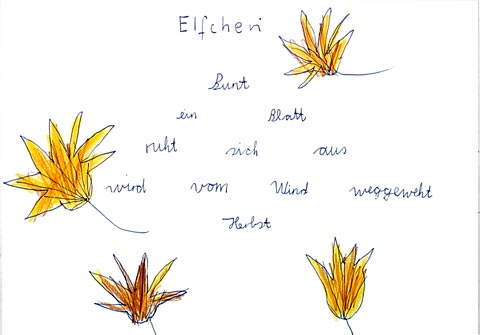 Elfchen
Bunt
ein Blatt
ruht sich aus
wird vom Wind weggeweht
Herbst